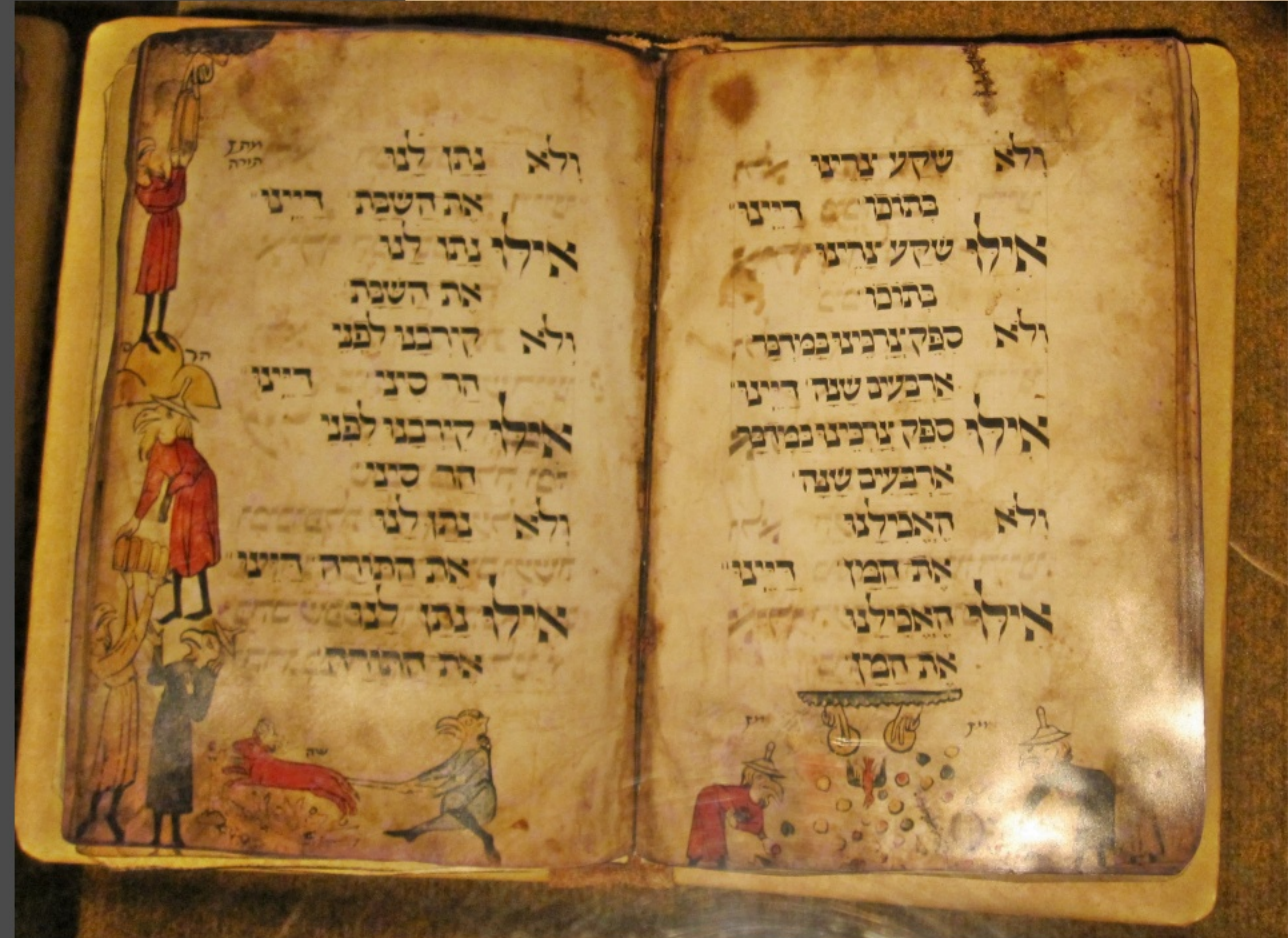 ולא שקע צרינו
בתוכו דיינו
אילו שקע צרינו
בתוכו
ולא ספק צרכינו במדבר
ארבעים שנה דיינו
אילו ספק צרכינו במדבר
ארבעים שנה
ולא האכילנו
את המן דיינו
אילו האכילנו
את המן
ולא נתן לנו
את השבת דיינו
אילו נתן לנו
את השבת
ולא קירבנו לפני
הר סיני דיינו
אילו קירבנו לפני
הר סיני
ולא נתן לנו
את התורה דיינו
אילו נתן לנו
את התורה
מתן
תורה
הר
שה